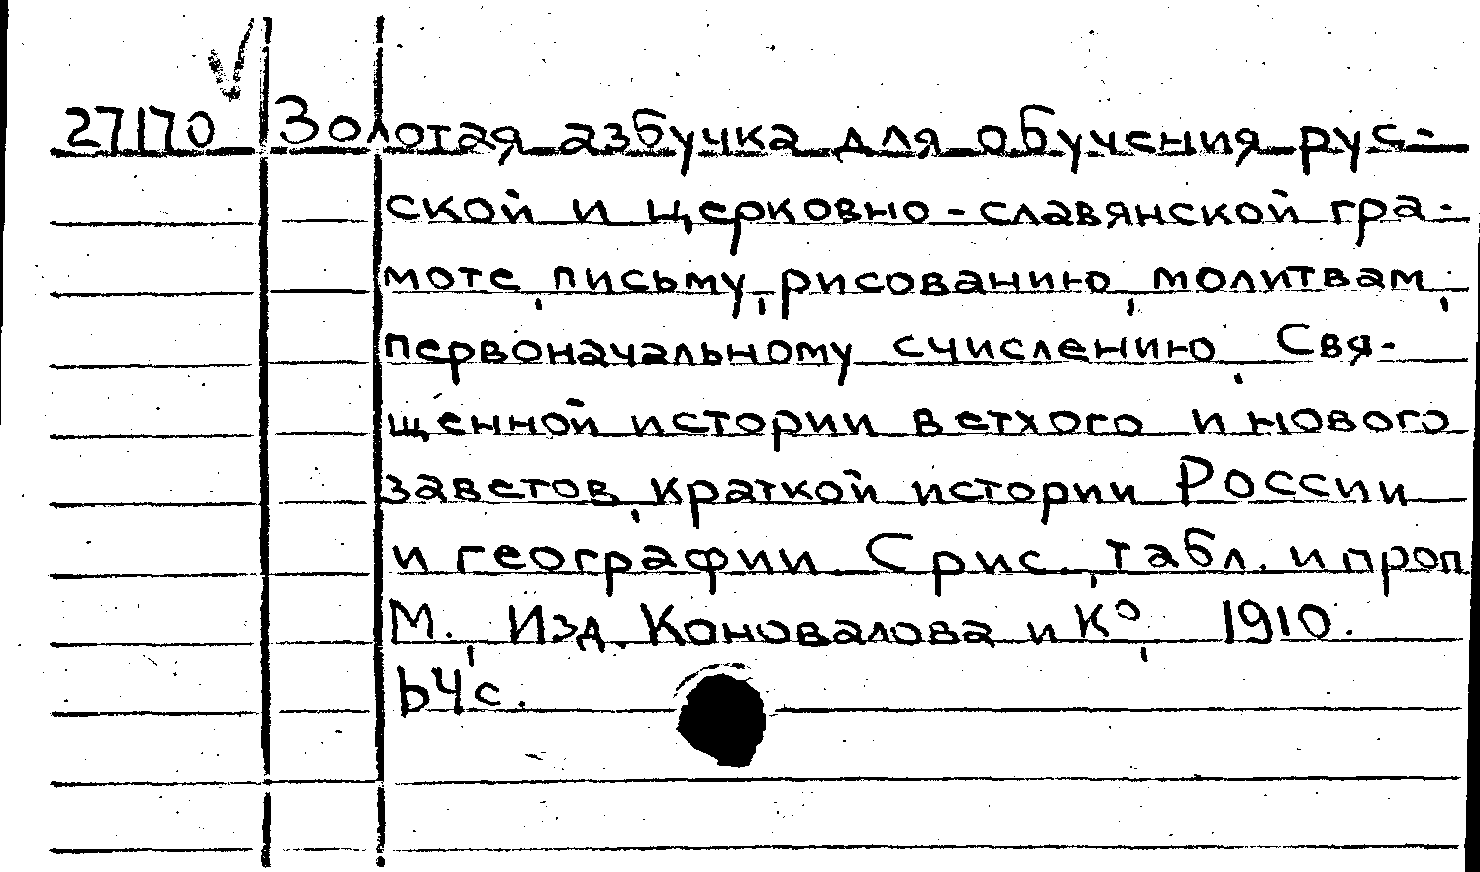 27170 Золотая азбучка для обучения рус-
ской и церковно-славянской гра-
моте, письму, рисованию, молитвам,
первоначальному счислению, Свя-
щенной истории ветхого и нового
заветов, краткой истории России
и географии. С рис., табл. и проп.
М., Изд. Коновалова и К°, 1910.
64 с.